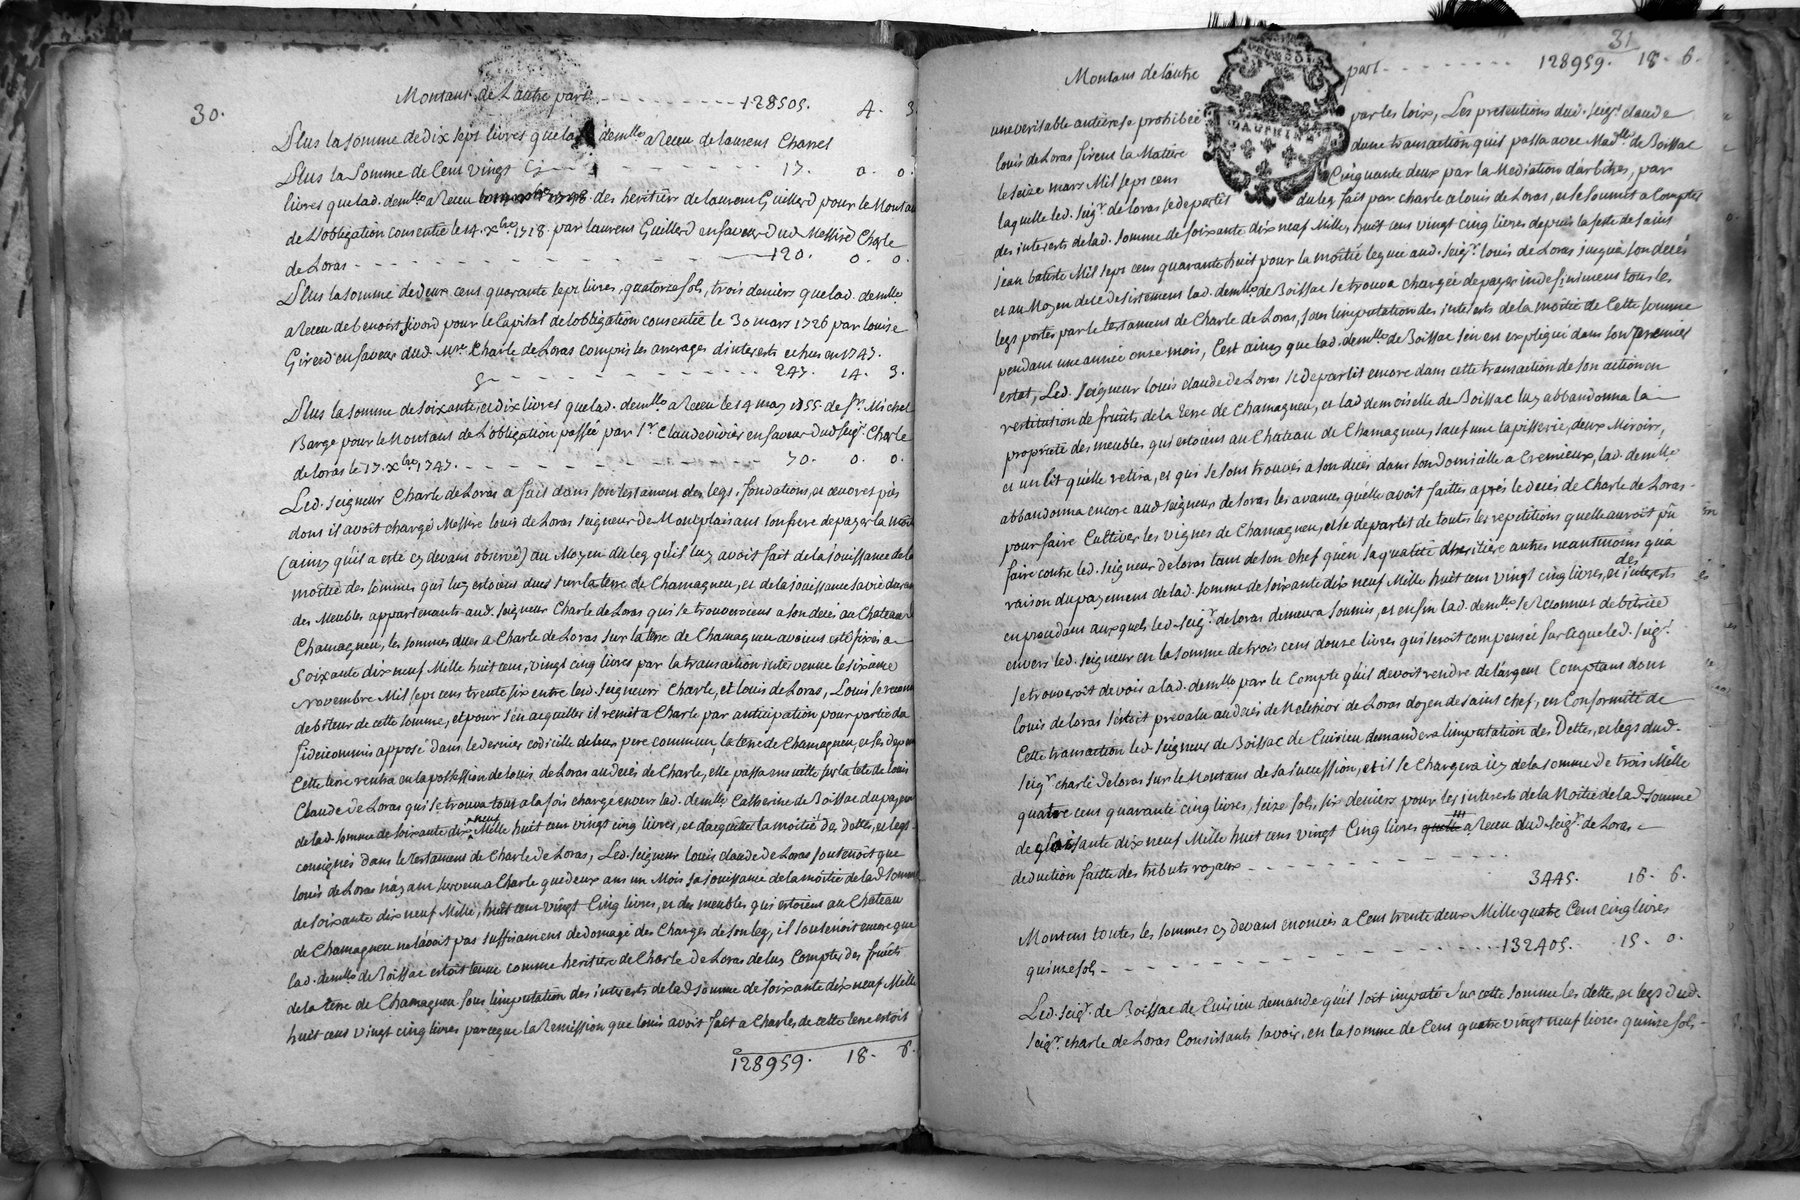 30.
Montant de Lautre part - - - - - - - - - 128505. 4. 3.
Plus la somme de dix sept livres que lad. demlle a Receu de laurens Charrel
17. 0. 0.
Plus la Somme de Cent vingt
livres que lad. demlle a Receu des heritiers de laurens Guillerd pour le Montant
de L'obligation consentie le 14. xbre 1718. par laurens Guillerd en faveur dud Messire Charle
de Loras - - - - - - - - - 120. 0. 0.
Plus la somme de deux cent quarante sept livres, quatorze sols, trois deniers que lad. demlle
a Receu de benoist sivord pour le Capital de lobligation consentie le 30 mars 1726 par louise
Girerd en faveur dud. Mre. Charle de Loras compris les arrerages d'interets echus en 1747.
- - - - - - - - - 247. 14. 3.
Plus la somme de soixante et dix livres que lad. demlle a Receu le 14 may 1755. de Sr. Michel
Barge pour le Montant de L'obligation passée par Sr. Claude vivier en faveur dud Seigr. Charle
de loras le 17. xbre 1747. - - - - - - - - - 70. 0. 0.
Led. Seigneur Charle de Loras a fait dans son testament des legs, fondations, et œuvres pies
dont il avoit chargé Messire louis de Loras seigneur de Montplaisant son frere de payer la moitié
(ainsy qu'il a esté cy devant observé) au Moyen du leg qu'il luy avoit fait de la jouissance de la
moitié des sommes qui luy estoient dues sur la terre de Chamagneu, et de la jouissance sa vie durant
des Meubles appartenants aud. seigneur Charle de Loras qui se trouveroient a son decés au Chateau de
Chamagneu, les sommes dues a Charle de Loras sur la terre de Chamagneu avoient esté fixés a
Soixante dix neuf Mille huit cent, vingt cinq livres par la transaction intervenue le sixieme
novembre Mil sept cent trente six entre lesd. seigneurs Charle, et louis de Loras, Louis se reconnut
debiteur de cette somme, et pour s'en acquitter il remit a Charle par anticipation pour partie du
fideicommis apposé dans le dernier codicille de leur pere commun la terre de Chamagneu, et ses dependances
Cette terre rentra en la possession de louis de Loras au decés de Charle, elle passa ensuitte sur la tete de louis
Claude de Loras qui se trouva tout a la fois chargé envers lad. demlle Catherine de Boissac du payement
de lad. somme de soixante dix neuf Mille huit cent vingt cinq livres, et d'acquitter la moitié des dettes, et legs
consignés dans le testament de Charle de Loras, Led. seigneur louis claude de Loras soutenoit que
louis de Loras n'ayant survecu a Charle que deux ans un Mois sa jouissance de la moitié de lad somme
de soixante dix neuf Mille, huit cent vingt Cinq livres, et des meubles qui estoient au Chateau
de Chamagneu ne l'avoit pas suffisament dedomagé des Charges de son leg, il soutenoit encore que
lad. demlle de Boissac estoit tenue comme heritiere de Charle de Loras de luy Compter des fruits
de la terre de Chamagneu sous l'imputation des interets de lad somme de soixante dix neuf Mille
huit cent vingt cinq livres parceque la Remission que louis avoit fait a Charles de cette terre estoit
128959. 18. 6.
31
Montant de lautre part - - - - - - - - 128959. 18. 6.
DAUPHINE
une veritable anticrese prohibée par les loix, Les pretentions dud. Seigr. claude
louis de Loras firent la Matiere d'une transaction qu'il passa avec Madlle de Boissac
le seize mars Mil sept cent Cinquante deux par la Mediation d'arbitres, par
laquelle led. Seigr. de loras se departit du leg fait par charle a louis de Loras, et se soumit a Compter
des interets de lad. somme de soixante dix neuf Mille, huit cent vingt cinq livres depuis la feste de saint
jean batiste Mil sept cent quarante huit pour la moitié leguée aud. Seigr. louis de Loras jusqu'a son decés
et au Moyen de ce desistement lad. demlle de Boissac se trouva chargée de payer indefiniment tous les
legs portés par le testament de Charle de Loras, sous limputation des interets de la moitié de Cette somme
pendant une année onze mois, C'est ainsy que lad. demlle de Boissac s'en est expliqué dans son premier
estat, Led. Seigneur louis claude de Loras se departit encore dans cette transaction de son action en
restitution de fruits de la terre de Chamagneu, et lad demoiselle de Boissac luy abbandonna la
propriété des meubles qui estoient au Chateau de Chamagneu, sauf une tapisserie, deux Miroirs,
et un lit qu'elle retira, et qui se sont trouvés a son decés dans son domicille a Cremieux, lad. demlle
abbandonna encore aud seigneur de Loras les avances qu'elle avoit faittes aprés le decés de Charle de Loras
pour faire Cultiver les vignes de Chamagneu, et se departit de toutes les repetitions quelle auroit pû
faire contre led. Seigneur de loras tant de son chef qu'en sa qualité d'heritiere autres neantmoins qu'a
raison du payement de lad. somme de soixante dix neuf Mille huit cent vingt cinq livres, et des interets
en procedant auxquels led. Seigr. de loras demeura soumis, et enfin lad. demlle se Reconnut debitrice
envers led. seigneur en la somme de trois cent douze livres qui seroit compensée sur ce que led. Seigr.
se trouveroit devoir a lad. demlle par le Compte qu'il devoit rendre de l'argent Comptant dont
louis de loras s'estoit prevalu au decés de Melchior de Loras doyen de saint chef, en Conformité de
Cette transaction led. Seigneur de Boissac de Cuirieu demandera l'imputation des Dettes, et legs dud.
Seigr. charle de loras sur le Montant de sa succession, et il se Chargera icy de la somme de trois Mille
quatre cent quarante cinq livres, seize sols, six deniers pour les interets de la Moitié de lad. somme
de soixante dix neuf Mille huit cent vingt Cinq livres a Receu dud. Seigr. de Loras
deduction faitte des tributs royaux - - - - - - - -
3445. 16. 6.
Montent toutes les sommes cy devant enoncées a Cent trente deux Mille quatre Cent cinq livres
quinze sols - - - - - - - - - 132405. 15. 0.
Led. Seigr. de Boissac de Cuirieu demande qu'il soit imputé sur cette somme les dettes, et legs dud.
Seigr. charle de Loras Consistants savoir, en la somme de Cent quatre vingt neuf livres quinze sols